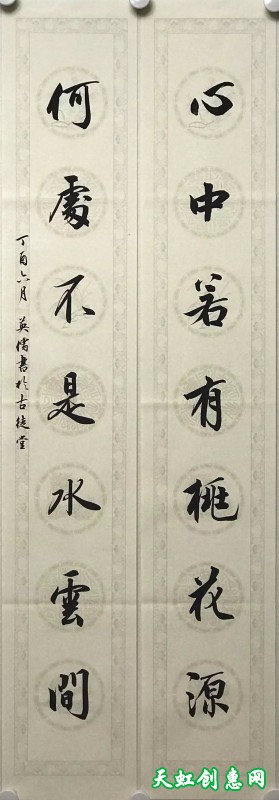 心中若有桃花源
何處不是水雲間
丁酉六月 英儒書於古徒堂
天虹创惠网